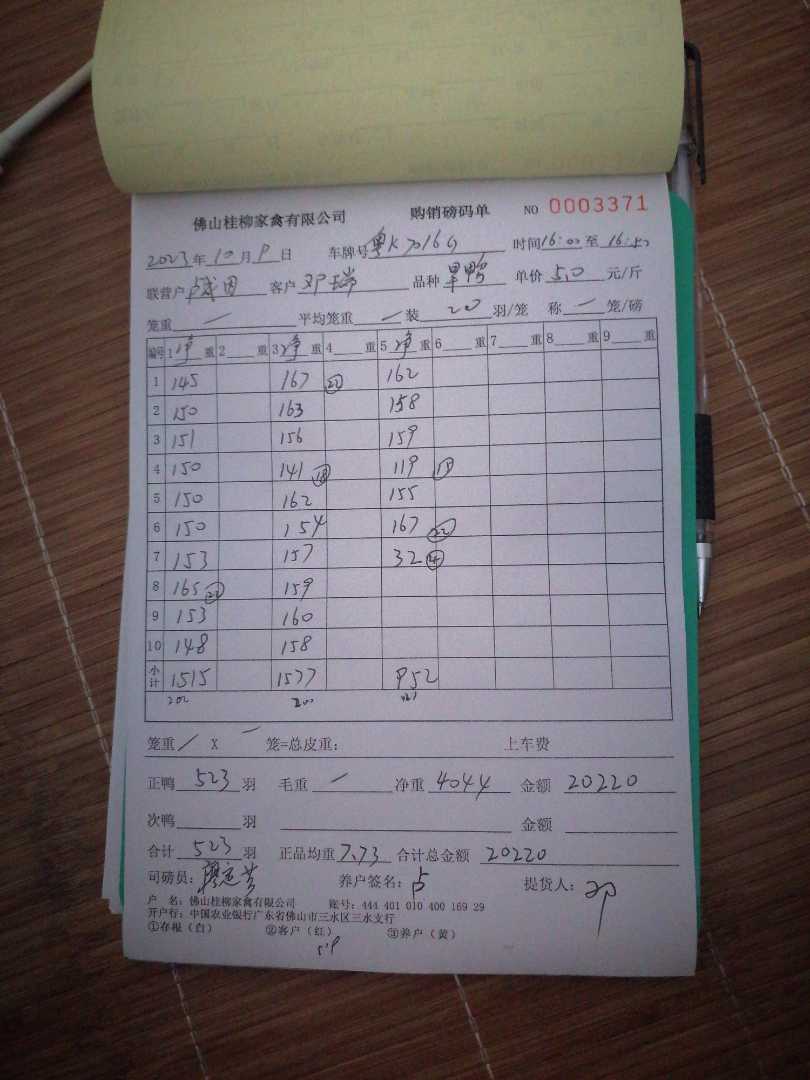 佛山桂柳家禽有限公司 购销磅码单 NO 0003371
2023年10月9日 车牌号粤K 时间16:00至16:50
联营户 客户邓瑞 品种旱鸭 单价5.0元/斤
笼重 — 平均笼重 — 装 20 羽/笼 称 — 笼/磅
编号 1净重 2 重 3净重 4 重 5净重 6 重 7 重 8 重 9 重
1 145 167 22 162
2 150 163 158
3 151 156 159
4 150 141 18 119
5 150 162 155
6 150 154 167 22
7 153 157 32 4
8 165 22 159
9 153 160
10 148 158
小计 1515 1577 952
202 200 121
笼重 / X — 笼=总皮重: 上车费
正鸭 523 羽 毛重 — 净重 4044 金额 20220
次鸭 羽 金额
合计 523 羽 正品均重 7.73 合计总金额 20220
司磅员: 养户签名: 提货人: 邓
户 名: 佛山桂柳家禽有限公司 账号: 444 401 010 400 169 29
开户行: 中国农业银行广东省佛山市三水区三水支行
①存根(白) ②客户(红) ③养户(黄)